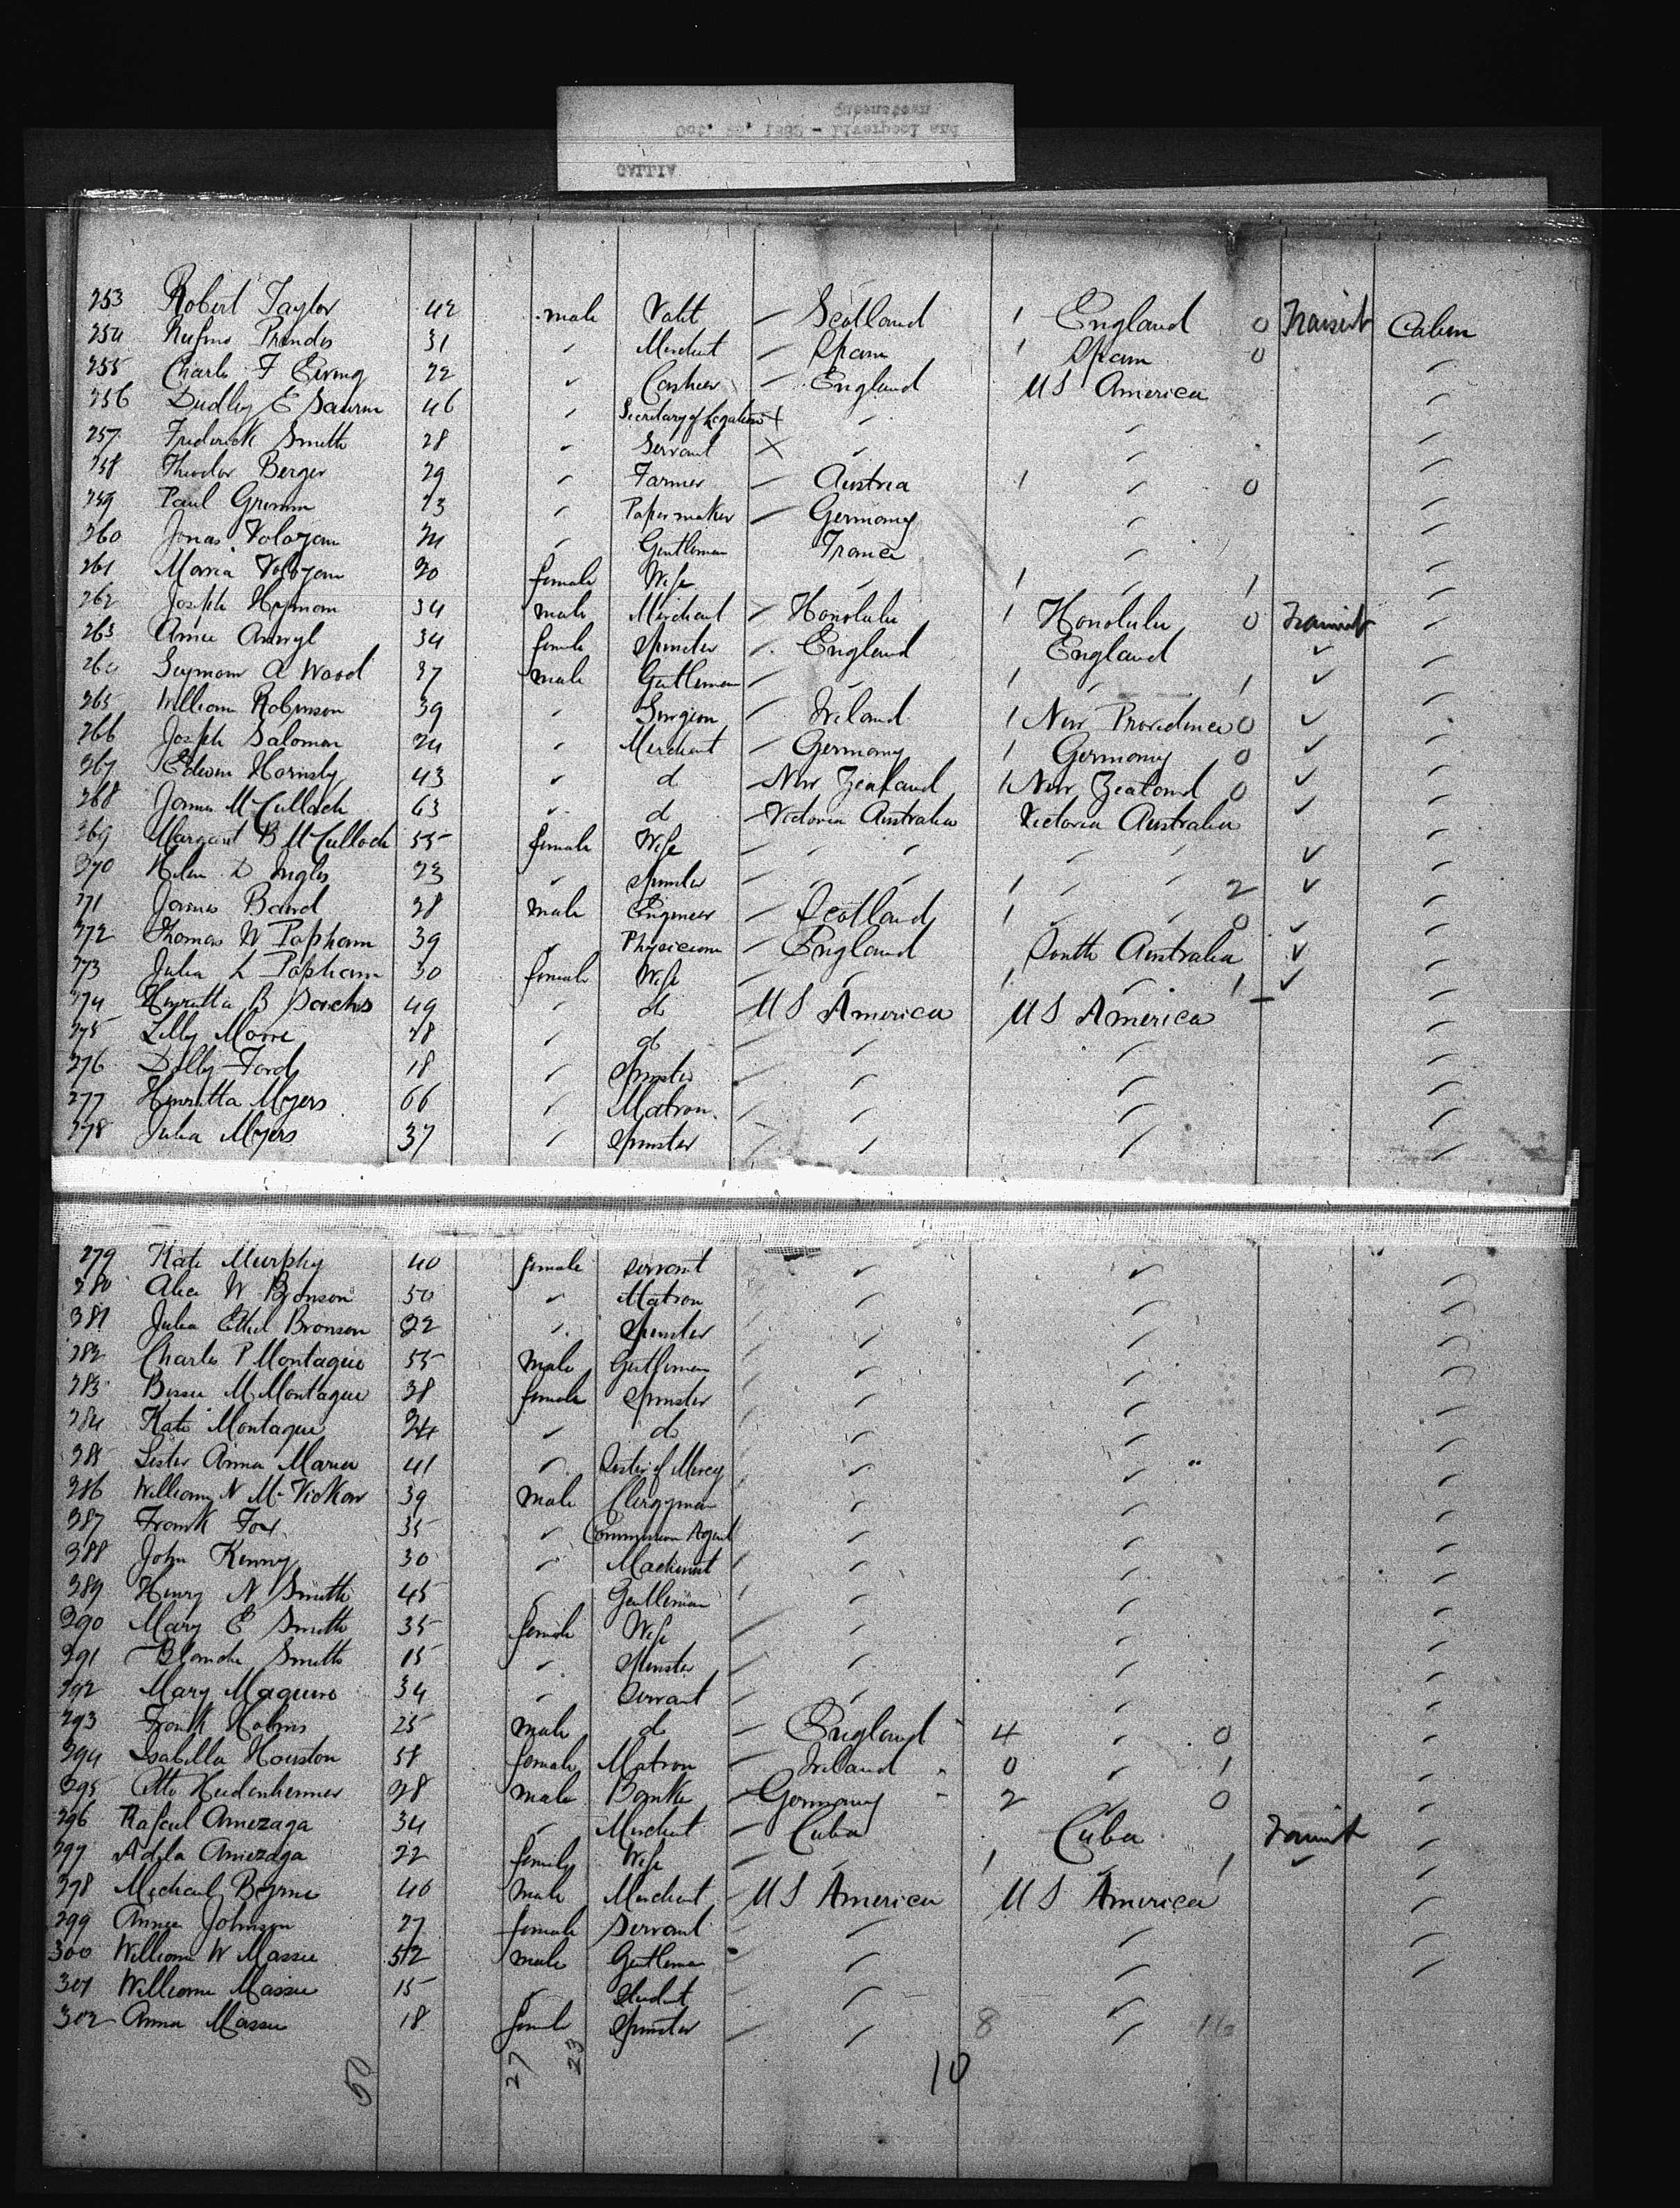 GALLIA
Liverpool and
Queenstown
253 Robert Taylor 42 male Valet Scotland 1 England 0 Transit Cabin
254 31 ✓ Merchant Spain 1 Spain 0
255 Charles F 22 ✓ Cashier England U S America
256 Dudley E 46 Secretary of Legation X
257 Frederick Smith 28 Servant X
258 Theodor Berger 29 Farmer Austria 1 0
259 Paul Grimm 23 Papermaker Germany
260 Jonas Gentleman France
261 Maria 20 female Wife 1 1
262 Joseph Hyman 34 male Merchant Honolulu 1 Honolulu 0 Transit
263 34 female Spinster England England ✓
264 Seymour A Wood 37 male Gentleman 1 1 ✓
265 William Robinson 39 Surgeon Ireland 1 New Providence 0 ✓
266 Joseph Salomon 24 Merchant Germany 1 Germany 0 ✓
267 Edwin Hornsby 43 do New Zealand 1 New Zealand 0 ✓
268 James McCulloch 63 do Victoria Australia Victoria Australia ✓
269 Margaret B McCulloch 55 female Wife ✓
270 Helen D Inglis 23 Spinster 1 2 ✓
271 James 28 male Engineer Scotland 1 0 ✓
272 Thomas W Popham 39 Physician England South Australia ✓
273 Julia L Popham 30 female Wife 1 1 ✓
274 Henrietta B Sachs 49 do U S America U S America
275 Lilly Moore 28 do
276 Dolly Ford 18 Spinster
277 Henrietta Myers 66 Matron
278 Julia Myers 37 Spinster
279 Kate Murphy 40 female Servant
280 Alice W Bronson 50 Matron
281 Julia Ethel Bronson 22 Spinster
282 Charles P Montague 55 male Gentleman
283 Bessie M Montague 28 female Spinster
284 Kate Montague 24 do
285 Sister Anna Maria 41 Sister of Mercy
286 William N McVickar 39 male Clergyman
287 Frank Fox 35 Commission Agent
288 John Kenny 30 Machinist
289 Henry N Smith 45 Gentleman
290 Mary E Smith 35 female Wife
291 Blanche Smith 15 Spinster
292 Mary Maguire 34 Servant
293 Frank Holmes 25 male do England 4 0
294 Isabella Houston 58 female Matron Ireland 0 1
295 Otto Heidenheimer 28 male Banker Germany 2 0
296 Rafael Amezaga 34 Merchant Cuba Cuba Transit
297 Adela Amezaga 22 female Wife 1 1 ✓
298 Michael Byrne 40 male Merchant U S America U S America
299 Annie Johnson 27 female Servant
300 William W Massie 52 male Gentleman
301 William Massie 15 Student
302 Anna Massie 18 female Spinster 8 16
50 27 23 10